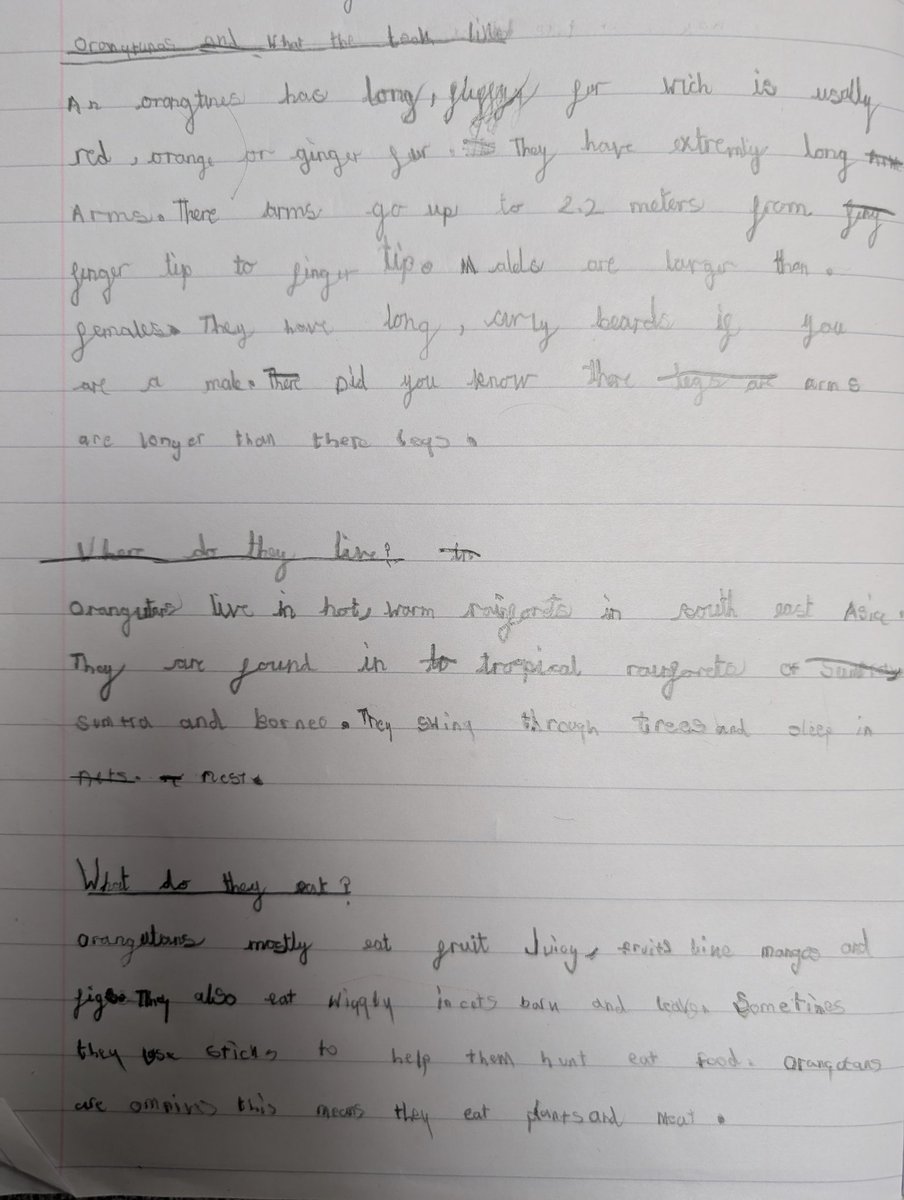 Orangtunas and What the look like
An orangtines has long, fluffy fur wich is usally
red, orange or ginger fur. They have extremly long
Arms. There arms go up to 2.2 meters from
finger tip to finger tip. Malds are larger then.
females. They have long, curly beards if you
are a male. Did you know there arms
are longer than there legs.
Where do they live?
Orangutans live in hot, warm in south east Asia.
They are found in tropical of
Sumtra and Borneo. They swing through trees and sleep in
nest.
What do they eat?
Orangutans mostly eat fruit Juicy, fruits like mangos and
figs. They also eat wiggly incets bark and leavs. Sometimes
they use sticks to help them hunt eat food. Orangotans
are omnivrs this means they eat plants and meat.